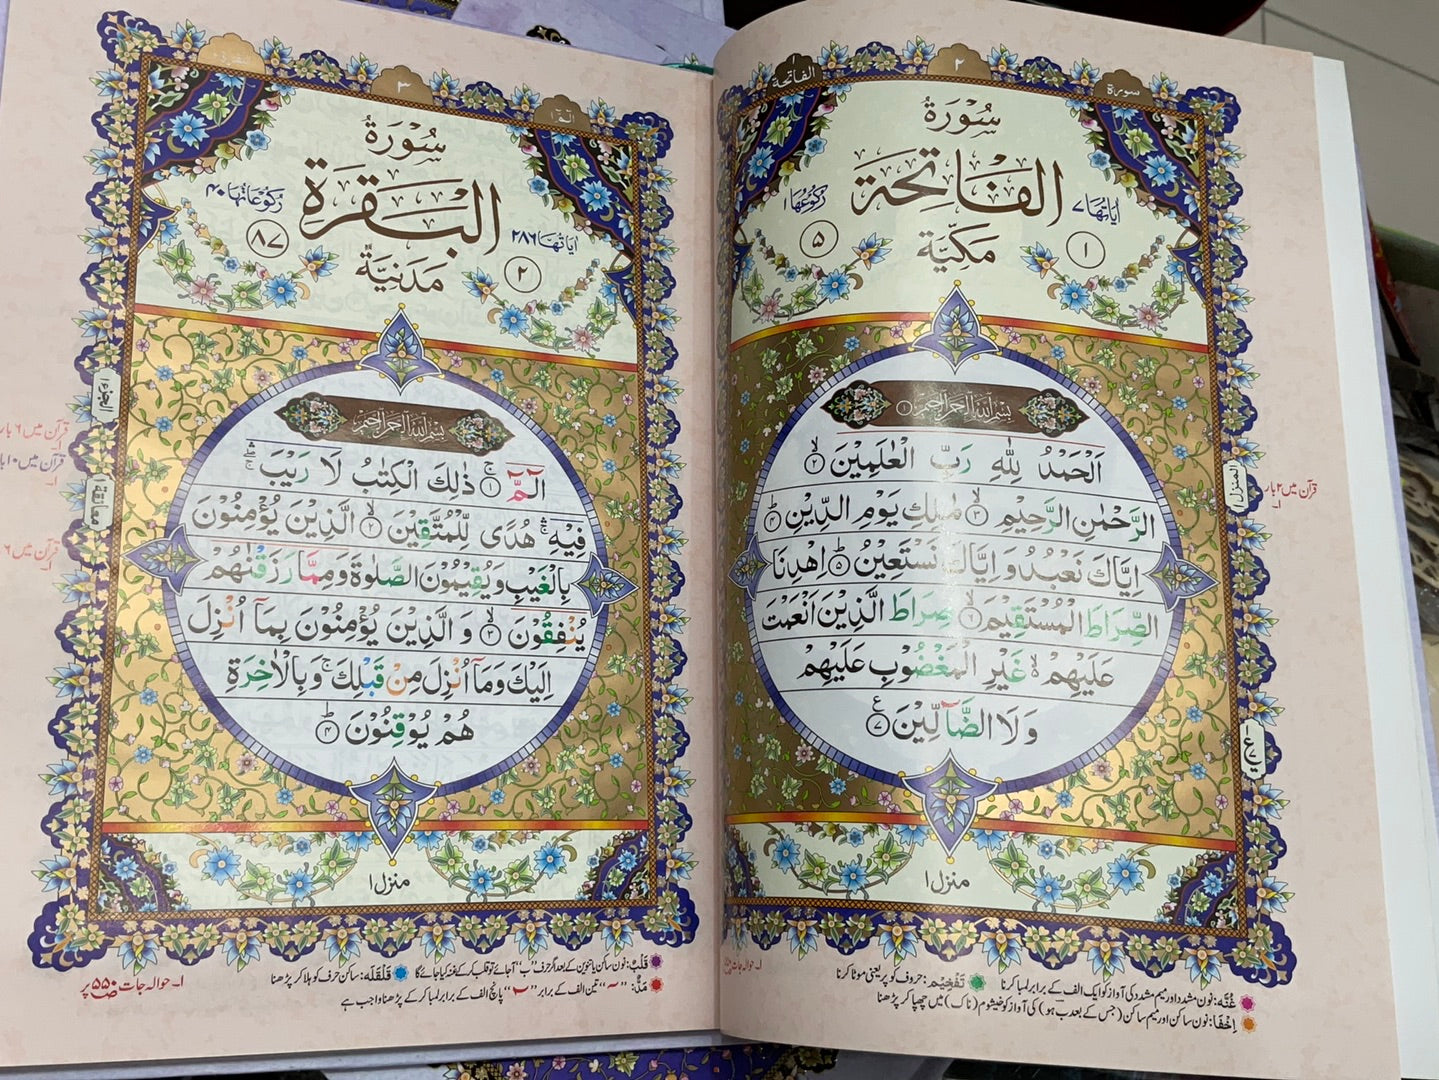 سورة
٢
الفاتحة ١
سُوْرَةُ
الفَاتِحَة
مَكِّيَّة
اٰيَاتُهَا ٧
رُكُوْعُهَا ١
١
٥
بِسْمِ اللّٰهِ الرَّحْمٰنِ الرَّحِيْمِ ١
اَلْحَمْدُ لِلّٰهِ رَبِّ الْعٰلَمِيْنَ ٢
الرَّحْمٰنِ الرَّحِيْمِ ٣ مٰلِكِ يَوْمِ الدِّيْنِ ٤
اِيَّاكَ نَعْبُدُ وَ اِيَّاكَ نَسْتَعِيْنُ ٥ اِهْدِنَا
الصِّرَاطَ الْمُسْتَقِيْمَ ٦ صِرَاطَ الَّذِيْنَ اَنْعَمْتَ
عَلَيْهِمْ غَيْرِ الْمَغْضُوْبِ عَلَيْهِمْ
وَ لَا الضَّآلِّيْنَ ٧
منزل ١
المنزل ١
قرآن میں ۲ بار
غُنَّہ: نون مشدد اور میم مشدد کی آواز کو ایک الف کے برابر لمبا کرنا تَفْخِیْم: حروف کو پُر یعنی موٹا کرنا
اِخْفَا: نون ساکن اور میم ساکن (جس کے بعد ب ہو) کی آواز کو خیشوم (ناک) میں چھپا کر پڑھنا
الٓمّٓ ١
٣
البقرة ٢
سُوْرَةُ
البَقَرَة
مَدَنِيَّة
اٰيَاتُهَا ٢٨٦
رُكُوْعَاتُهَا ٤٠
٢
٨٧
بِسْمِ اللّٰهِ الرَّحْمٰنِ الرَّحِيْمِ
الٓمّٓ ١ ذٰلِكَ الْكِتٰبُ لَا رَيْبَ
فِيْهِ هُدًى لِّلْمُتَّقِيْنَ ٢ الَّذِيْنَ يُؤْمِنُوْنَ
بِالْغَيْبِ وَ يُقِيْمُوْنَ الصَّلٰوةَ وَ مِمَّا رَزَقْنٰهُمْ
يُنْفِقُوْنَ ٣ وَ الَّذِيْنَ يُؤْمِنُوْنَ بِمَآ اُنْزِلَ
اِلَيْكَ وَ مَآ اُنْزِلَ مِنْ قَبْلِكَ وَ بِالْاٰخِرَةِ
هُمْ يُوْقِنُوْنَ ٤
منزل ١
الجزء ١
معانقة ١
قرآن میں ۶ بار
قرآن میں ۱۰ با
قرآن میں ۶
قَلْب: نون ساکن یا تنوین کے بعد اگر حرف "ب" آجائے تو قلب کر کے غنہ کیا جائے گا قَلْقَلَہ: ساکن حرف کو ہلا کر پڑھنا
مَدّ: "ٓ" تین الف کے برابر "ٓ" پانچ الف کے برابر لمبا کر کے پڑھنا واجب ہے
۱- حوالہ جات ص ۵۵۰ پر